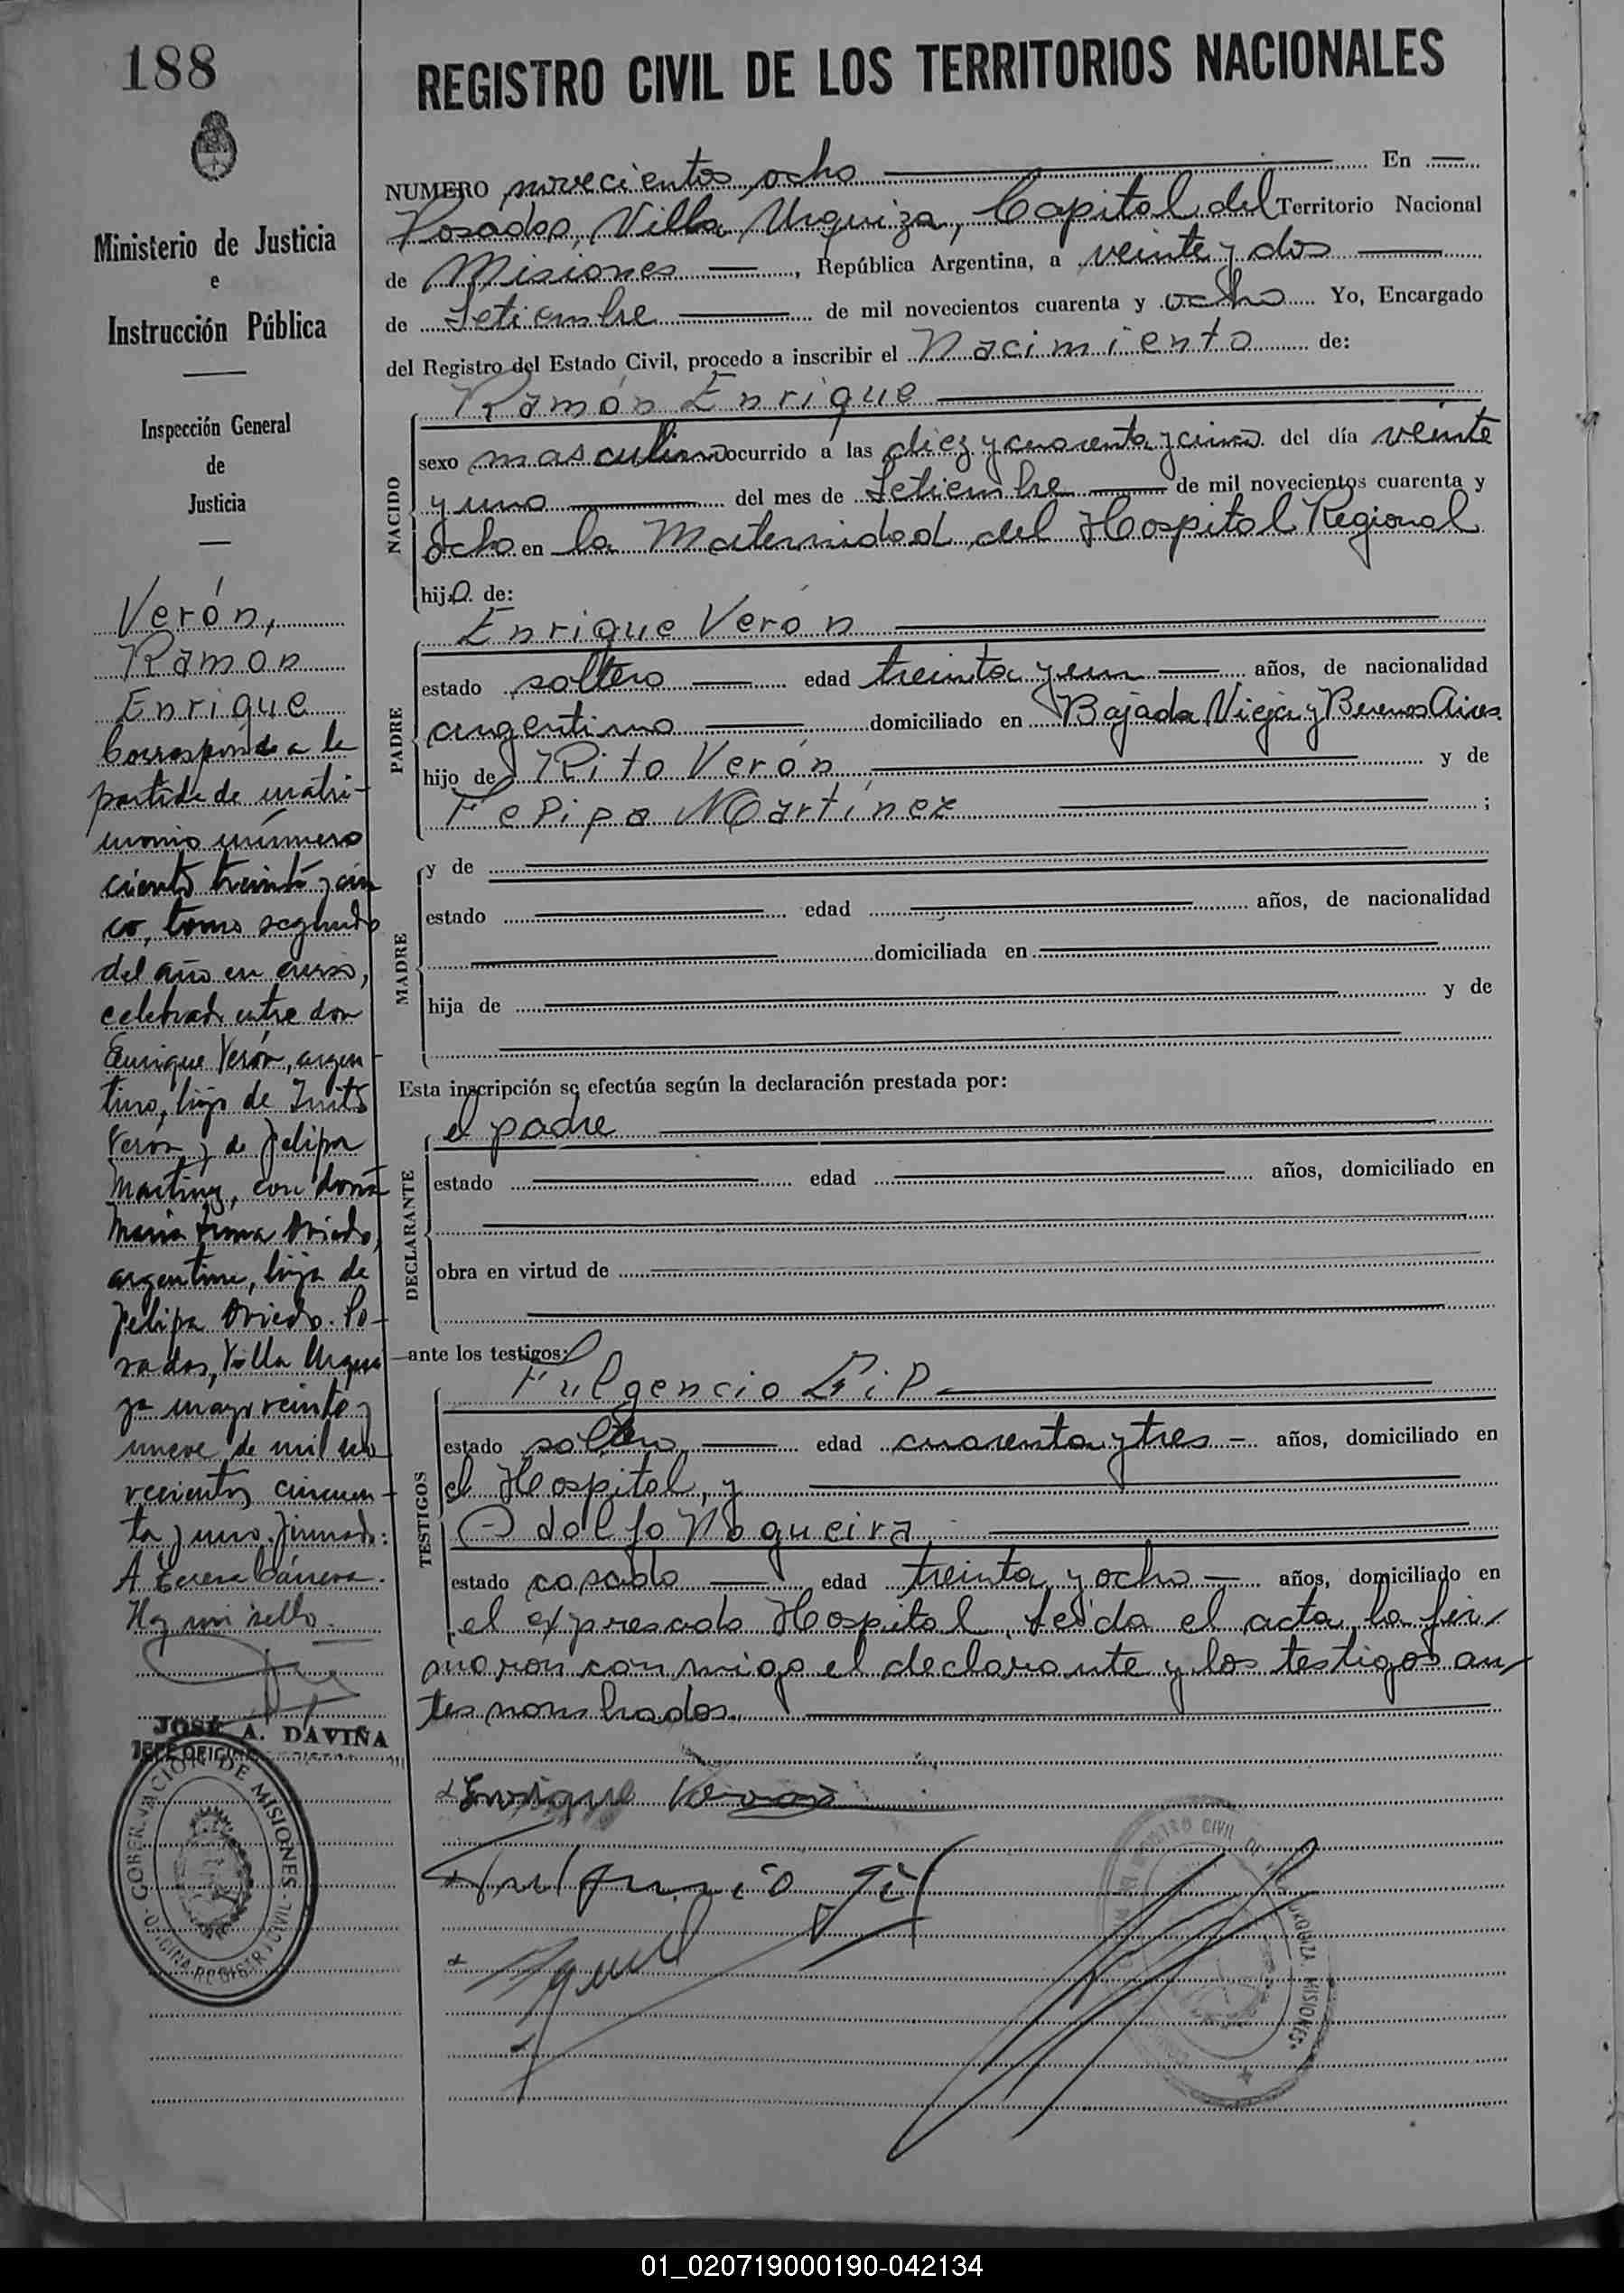 188
REGISTRO CIVIL DE LOS TERRITORIOS NACIONALES
Ministerio de Justicia
e
Instrucción Pública
Inspección General
de
Justicia
Verón,
Ramon
Enrique
Corresponde a la
partida de matri-
monio número
ciento treinta y cin
co, tomo segundo
del año en curso,
celebrado entre don
Enrique Verón, argen-
tino, hijo de
Verón y de Felipa
Martinez, con doña
Maria Oviedo,
argentina, hija de
Felipa Oviedo. Po-
sadas, Villa Urqui
za mayo veinte y
nueve de mil no
vecientos cincuen-
ta y uno. Firmado:
A Barrera.
Hay un sello.
JOSÉ A. DAVIÑA
JEFE OFICINA
GOBERNACION DE MISIONES
OFICINA REGISTRO CIVIL
NUMERO novecientos ocho En
Posadas, Villa Urquiza, Capital del Territorio Nacional
de Misiones, República Argentina, a veinte y dos
de Setiembre de mil novecientos cuarenta y ocho Yo, Encargado
del Registro del Estado Civil, procedo a inscribir el Nacimiento de:
NACIDO
Ramón Enrique
sexo masculino ocurrido a las diez y cuarenta y cinco del día veinte
y uno del mes de Setiembre de mil novecientos cuarenta y
ocho en la Maternidad del Hospital Regional
hijo de:
PADRE
Enrique Verón
estado soltero edad treinta y un años, de nacionalidad
argentino domiciliado en Bajada Vieja y Buenos Aires
hijo de Rito Verón y de
Felipa Martínez ;
MADRE
y de
estado edad años, de nacionalidad
domiciliada en
hija de y de
Esta inscripción se efectúa según la declaración prestada por:
DECLARANTE
el padre
estado edad años, domiciliado en
obra en virtud de
ante los testigos:
TESTIGOS
Fulgencio Gil
estado soltero edad cuarenta y tres años, domiciliado en
el Hospital, y
Adolfo Nogueira
estado casado edad treinta y ocho años, domiciliado en
el expresado Hospital. Leída el acta, la fir-
maron conmigo el declarante y los testigos an-
tes nombrados.
Enrique Veron
Fulgencio Gil
REGISTRO CIVIL DE
URQUIZA MISIONES
01_020719000190-042134